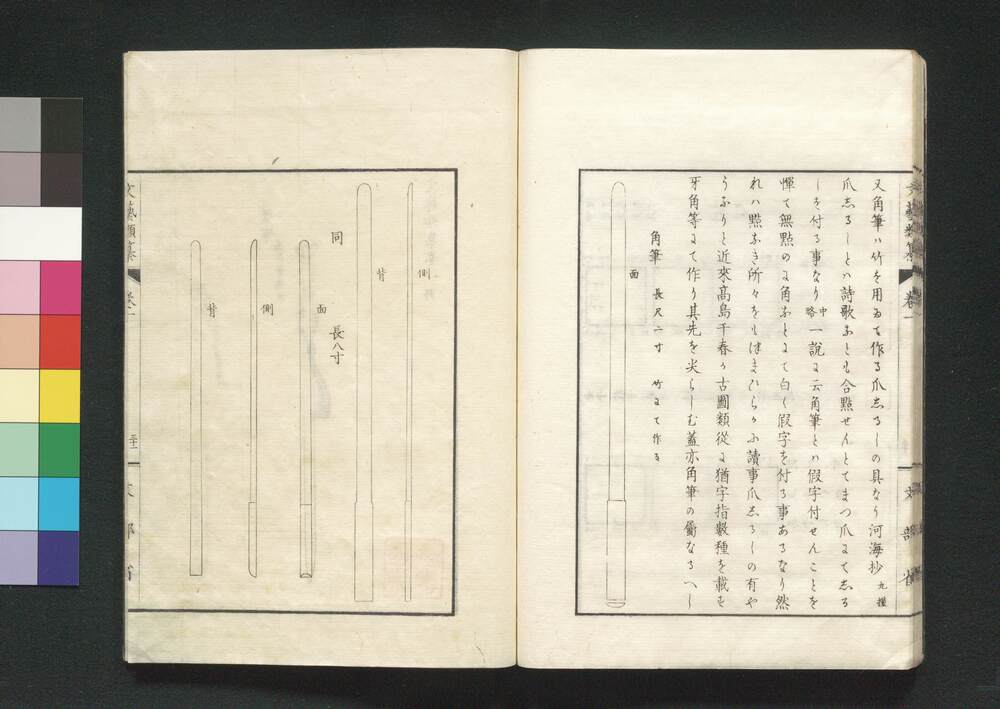 又角筆ハ竹を用ゐて作る爪志るしの具なり河海抄 九種
爪志るしとハ詩歌なとも合點せんとてまつ爪にて志る
しを付る事なり 中略 一說に云角筆とハ假字付せんことを
憚て無點のに角なとにて白く假字を付る事あるなり然
れハ點なき所々をもつまひらかに讀事爪志るしの有や
うなりと近來高島千春か古圖類從に猶字指數種を載せ
牙角等にて作り其先を尖らしむ蓋亦角筆の なるへし
角筆 長尺二寸 竹にて作る
面
文藝類纂 卷一
文部省
側
背
同 長八寸
面
側
背
文藝類纂 卷一
文部省